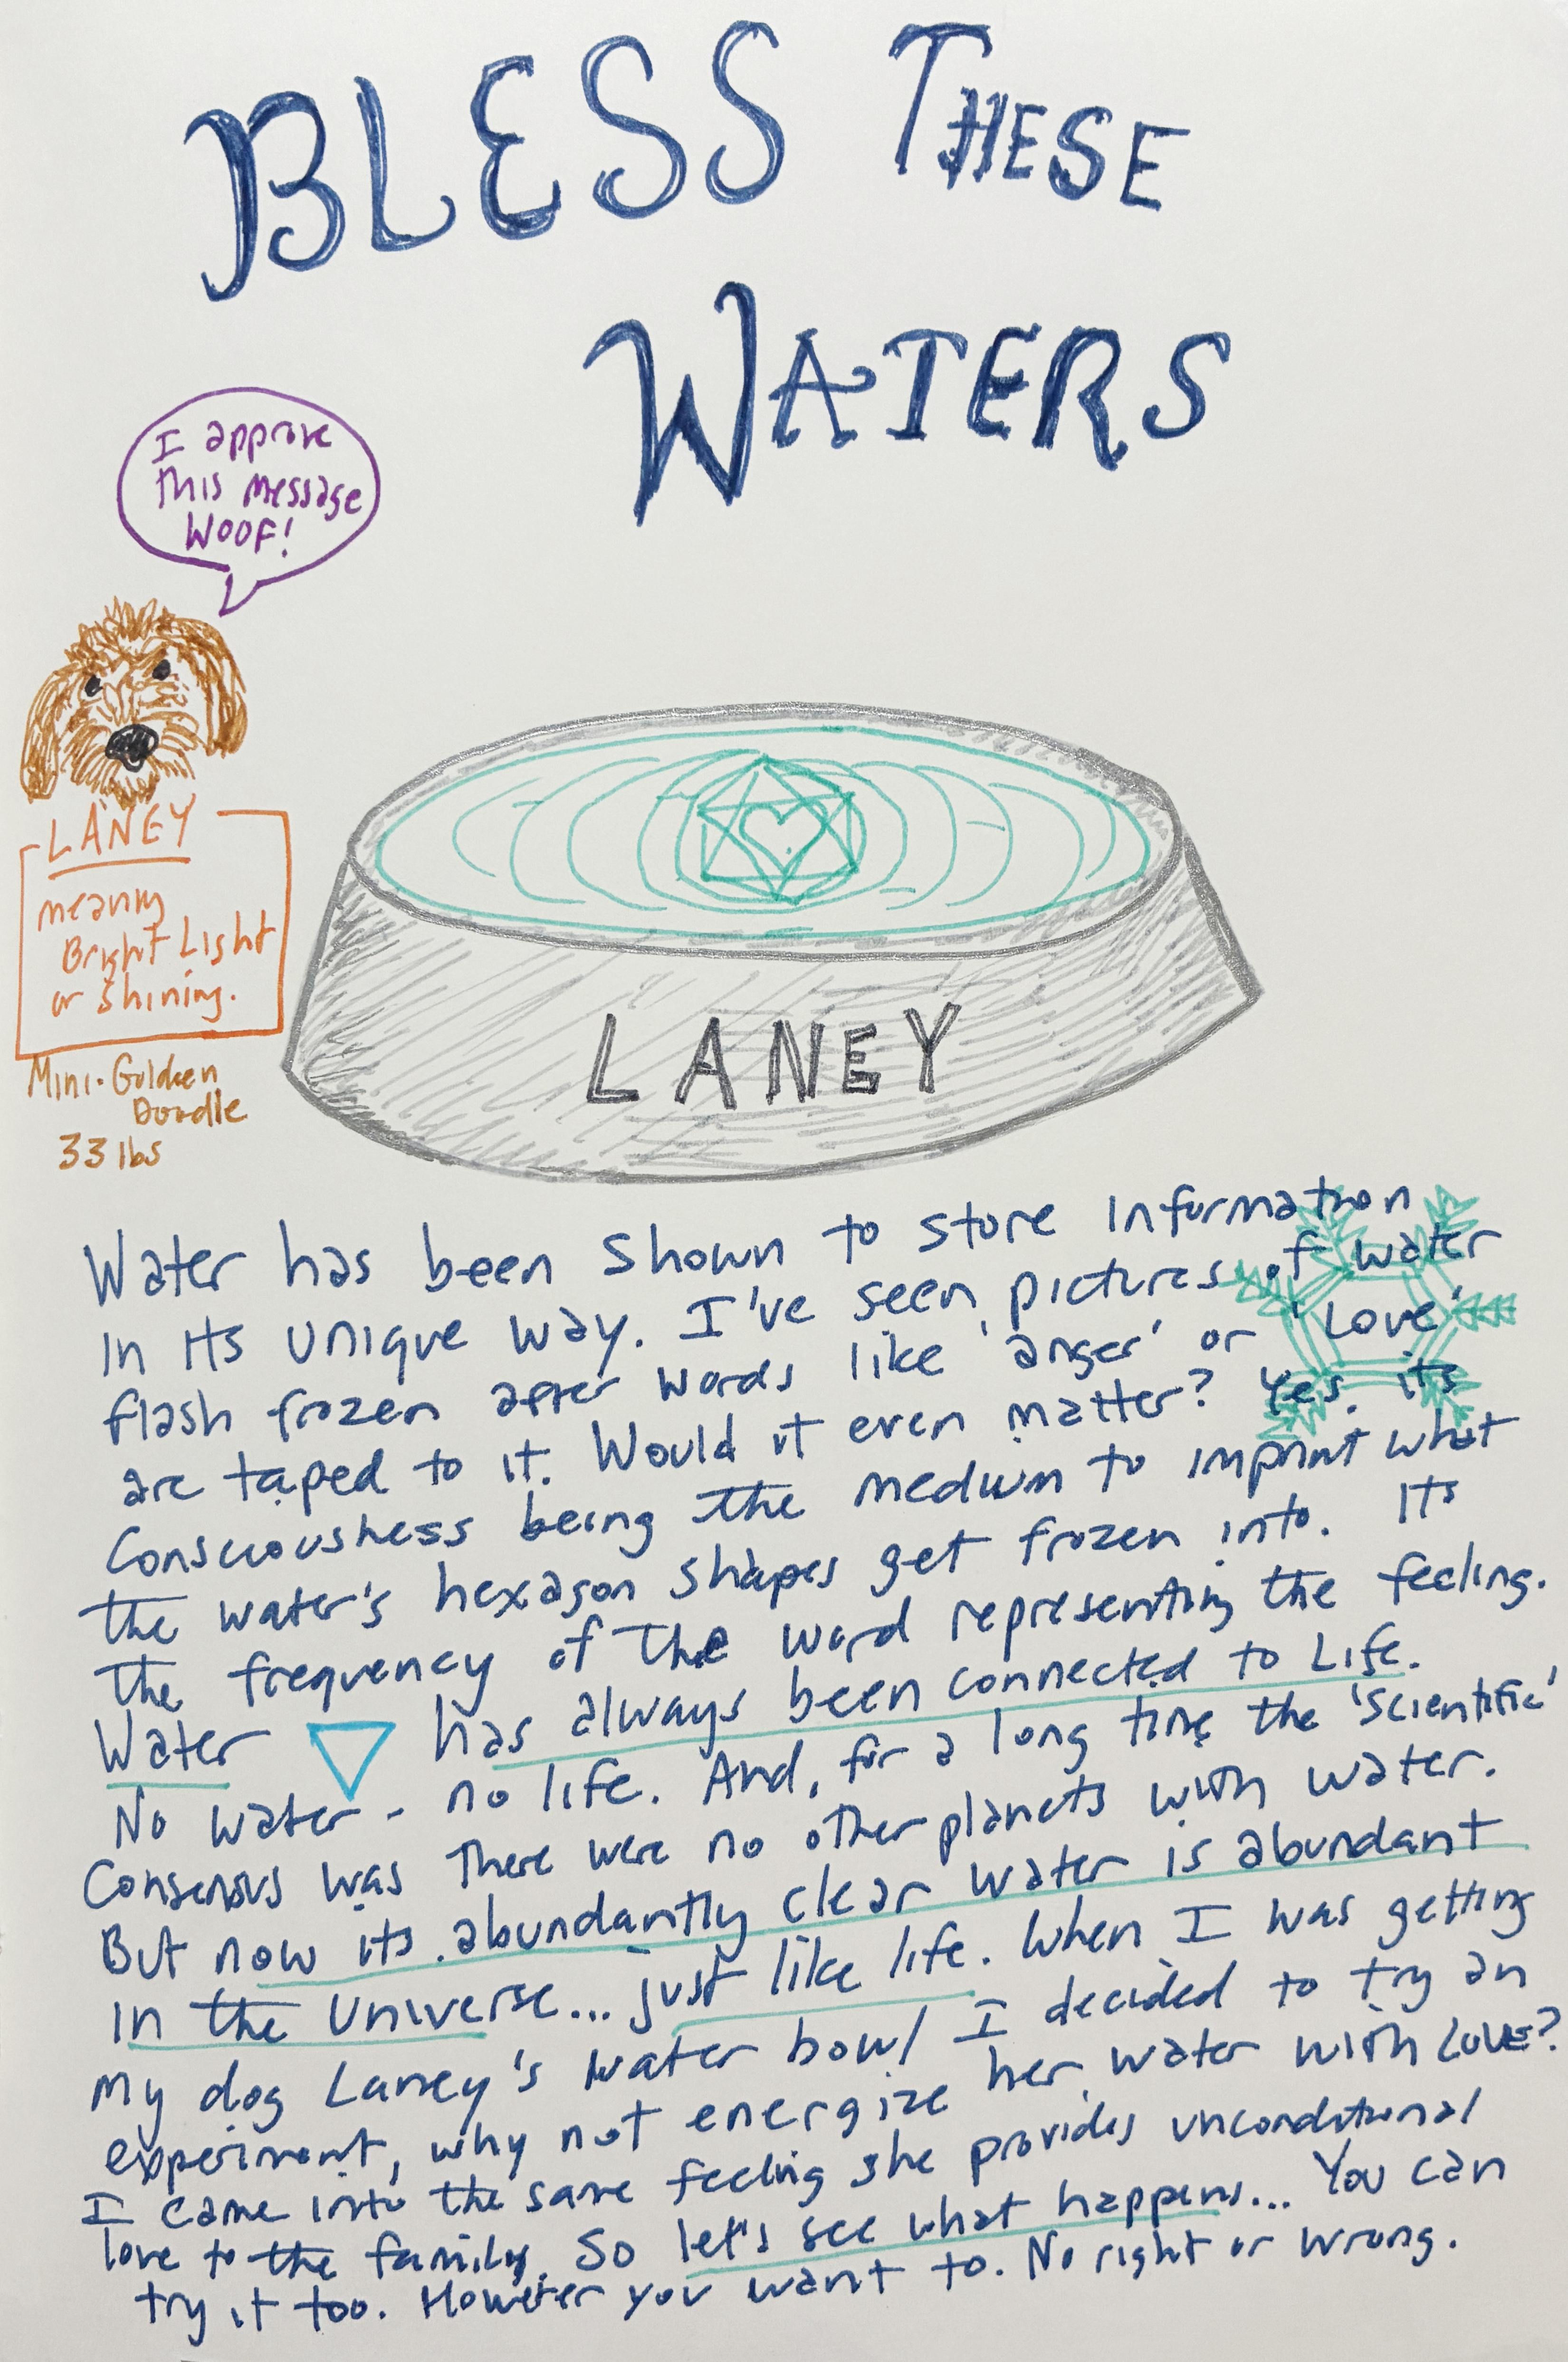 BLESS THESE
WATERS
I approve
this message
WOOF!
LANEY
meaning
Bright Light
or shining.
Mini-Golden
Doodle
33 lbs
LANEY
Water has been shown to store information
in its unique way. I've seen pictures of water
flash frozen after words like 'anger' or 'Love'
are taped to it. Would it even matter? Yes, its
Consciousness being the medium to imprint what
the water's hexagon shapes get frozen into. Its
the frequency of the word representing the feeling.
Water has always been connected to Life.
No water - no life. And, for a long time the 'scientific'
Consensus was there were no other planets with water.
But now its abundantly clear water is abundant
in the Universe... just like life. When I was getting
my dog Laney's water bowl I decided to try an
experiment, why not energize her water with LOVE?
I came into the same feeling she provides unconditional
love to the family. So let's see what happens... You can
try it too. However you want to. No right or wrong.